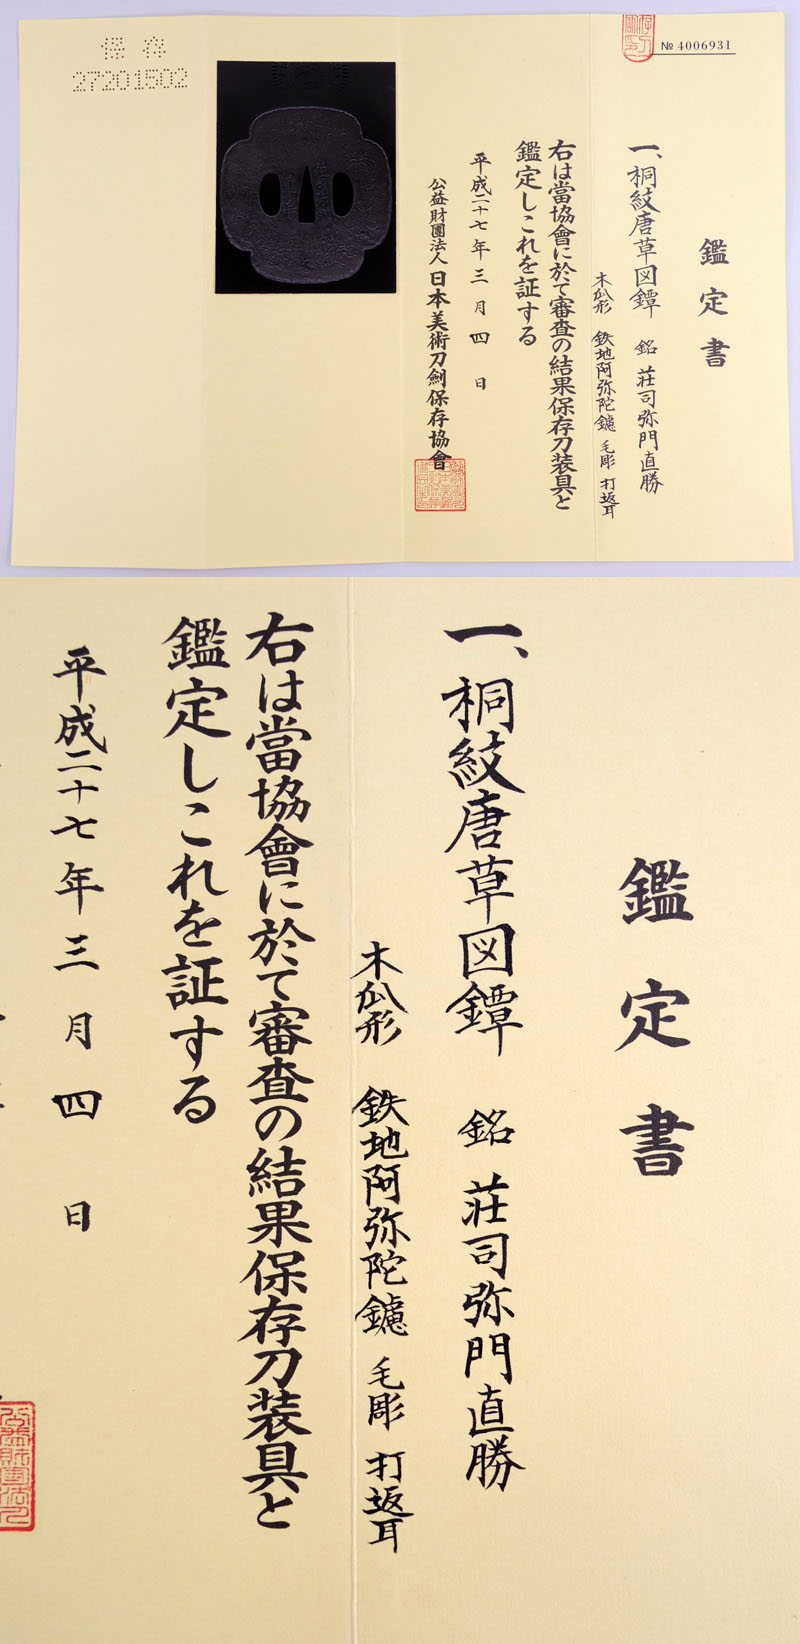 保存
27201502
№ 4006931
鑑定書
一、桐紋唐草図鐔 銘 荘司弥門直勝
木瓜形 鉄地阿弥陀鑢 毛彫 打返耳
右は當協會に於て審査の結果保存刀装具と
鑑定しこれを証する
平成二十七年三月四日
公益財團法人 日本美術刀劍保存協會
鑑定書
一、桐紋唐草図鐔 銘 荘司弥門直勝
木瓜形 鉄地阿弥陀鑢 毛彫 打返耳
右は當協會に於て審査の結果保存刀装具と
鑑定しこれを証する
平成二十七年三月四日